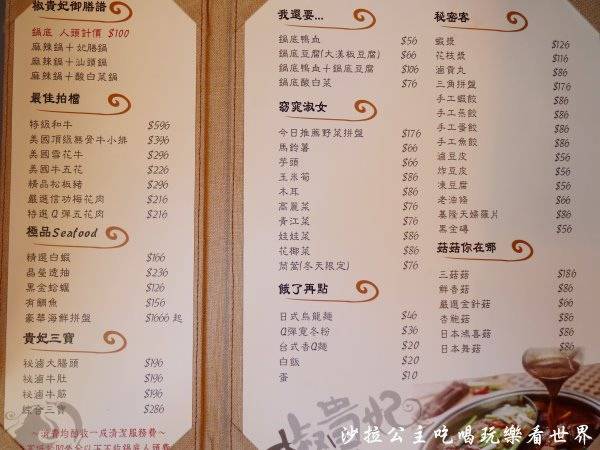 椒貴妃御膳譜
鍋底 人頭計價 $100
麻辣鍋＋妃膳鍋
麻辣鍋＋汕頭鍋
麻辣鍋＋酸白菜鍋
最佳拍檔
特級和牛 $596
美國頂級無骨牛小排 $396
美國雪花牛 $296
美國牛五花 $226
精品松板豬 $296
嚴選信功梅花肉 $216
特選Q彈五花肉 $216
極品Seafood
精選白蝦 $166
晶瑩透抽 $236
黑金蛤蠣 $126
有鯛魚 $156
豪華海鮮拼盤 $1666 起
貴妃三寶
祕滷大腸頭 $196
祕滷牛肚 $196
祕滷牛筋 $196
綜合三寶 $286
我還要...
鍋底鴨血 $56
鍋底豆腐(大漢板豆腐) $66
鍋底鴨血＋鍋底豆腐 $106
鍋底酸白菜 $76
窈窕淑女
今日推薦野菜拼盤 $176
馬鈴薯 $66
芋頭 $66
玉米筍 $86
木耳 $66
高麗菜 $76
青江菜 $76
娃娃菜 $86
花椰菜 $86
茼蒿(冬天限定) $76
餓了再點
日式烏龍麵 $46
Q彈寬冬粉 $36
台式香Q麵 $20
白飯 $20
蛋 $10
秘密客
蝦漿 $126
花枝漿 $116
滷貢丸 $86
三角拼盤 $176
手工蝦餃 $86
手工燕餃 $86
手工蛋餃 $86
手工魚餃 $86
滷豆皮 $56
炸豆皮 $56
凍豆腐 $56
老油條 $66
基隆天婦羅片 $86
黑金磚 $56
菇菇你在哪
三菇菇 $186
鮮香菇 $86
嚴選金針菇 $66
杏鮑菇 $86
日本鴻喜菇 $86
日本舞菇 $86
椒貴妃
沙拉公主吃喝玩樂看世界